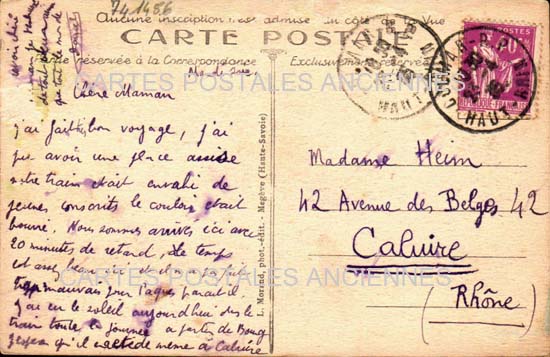 741456
Aucune inscription n'est admise du côté de la Vue
CARTE POSTALE
Partie réservée à la Correspondance
Exclusivement réservé
CARTES POSTALES ANCIENNES
Chère Maman
j'ai fait bon voyage, j'ai
pu avoir une place assise
notre train était envahi de
jeunes conscrits le couloir était
bourré. Nous sommes arrivés ici avec
20 minutes de retard, le temps
est assez beau
trop mauvais pour Pâques parait il
j'ai eu le soleil aujourd'hui dès le
train toute la journée a partir de Bourg
j'espère qu'il a été de même à Caluire
L. Morand, phot.-édit. - Megève (Haute-Savoie)
Madame Heim
42 Avenue des Belges 42
Caluire
(Rhône)
CARTES POSTALES ANCIENNES
REPUBLIQUE FRANÇAISE